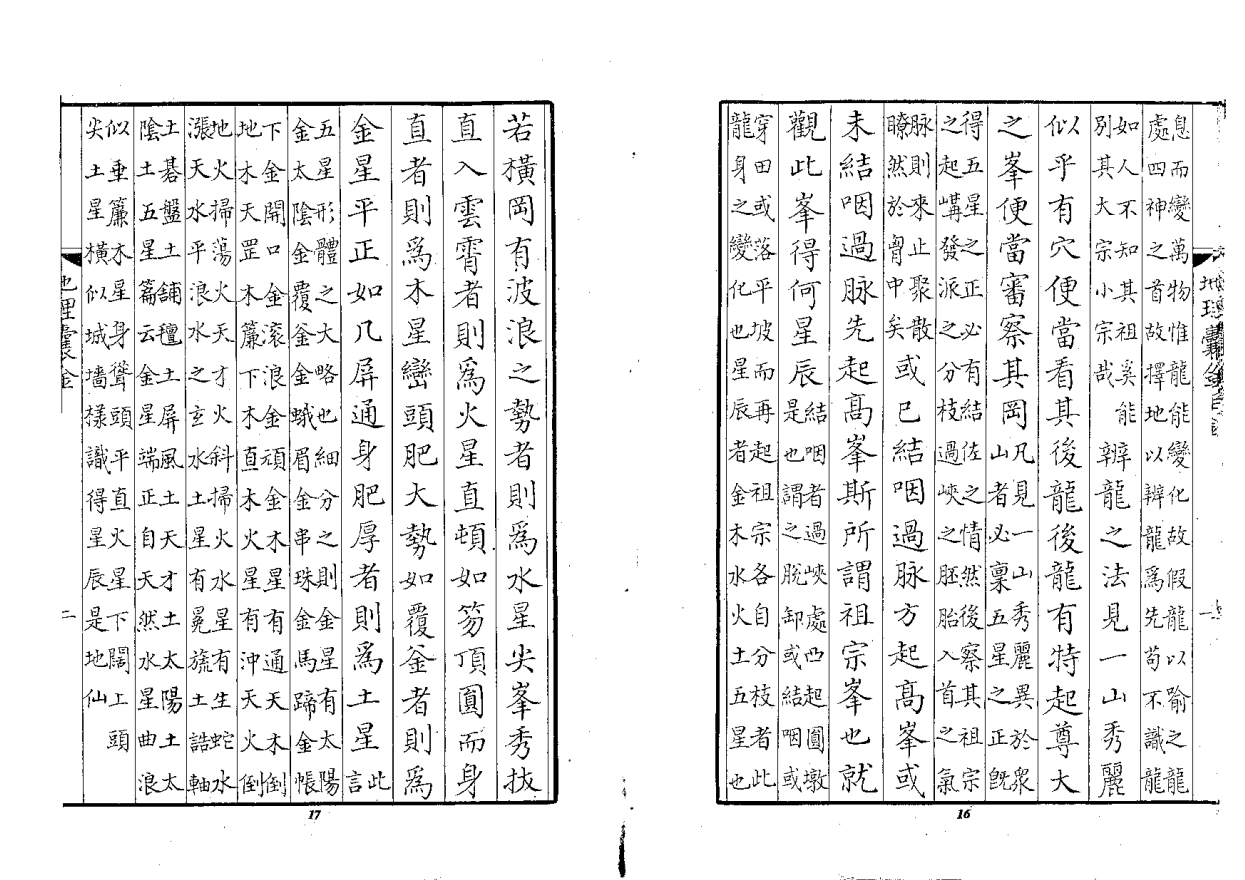 息而變萬物惟龍能變化故假龍以喻之龍
處四神之首故擇地以辨龍爲先苟不識龍
如人不知其祖奚能
別其大宗小宗哉
辨龍之法見一山秀麗
似乎有穴便當看其後龍後龍有特起尊大
之峯便當審察其岡
凡見一山秀麗異於衆
山者必稟五星之正旣
得五星之正必有結佐之情然後察其祖宗
之起嶹發派之分枝過峽之胚胎入首之氣
脉則來止聚散
瞭然於胷中矣
或已結咽過脉方起高峯或
未結咽過脉先起高峯斯所謂祖宗峯也就
觀此峯得何星辰
結咽者過峽處凸起圓墩
是也謂之脫卸或結咽或
穿田或落平坡而再起祖宗各自分枝者此
龍身之變化也星辰者金木水火土五星也
16
若橫岡有波浪之勢者則爲水星尖峯秀拔
直入雲霄者則爲火星直頓如笏頂圓而身
直者則爲木星巒頭肥大勢如覆釜者則爲
金星平正如几屏通身肥厚者則爲土星
此
言
五星形體之大略也細分之則金星有太陽
金太陰金覆釜金蛾眉金串珠金馬蹄金帳
下金開口金滾浪金頑金木星有通天木倒
地木天罡木簾下木直木火星有沖天火倒
地火掃蕩火天才火斜掃火水星有生蛇水
漲天水平浪水之玄水土星有冕旒土誥軸
土碁盤土舖氊土屏風土天才土太陽土太
陰土五星篇云金星端正自天然水星曲浪
似垂簾木星身聳頭平直火星下闊上頭
尖土星橫似城墻樣識得星辰是地仙
地理囊金
二
17